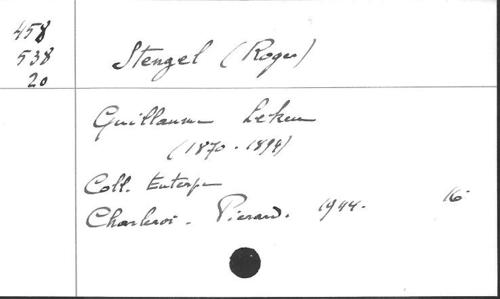 458
538
20
Stengel (Roger)
Guillaume Lekeu
(1870-1894)
Coll. Euterpe
Charleroi - Pierard. 1944. 16